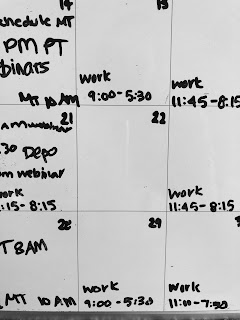 14
schedule MT
PM PT
binars
MT 10 AM
15
work
9:00-5:30
work
11:45-8:15
21
AM webinar
30 Depo
m webinar
work
:15-8:15
22
work
11:45-8:15
28
T 8AM
MT 10 AM
29
work
9:00-5:30
work
11:00-7:30